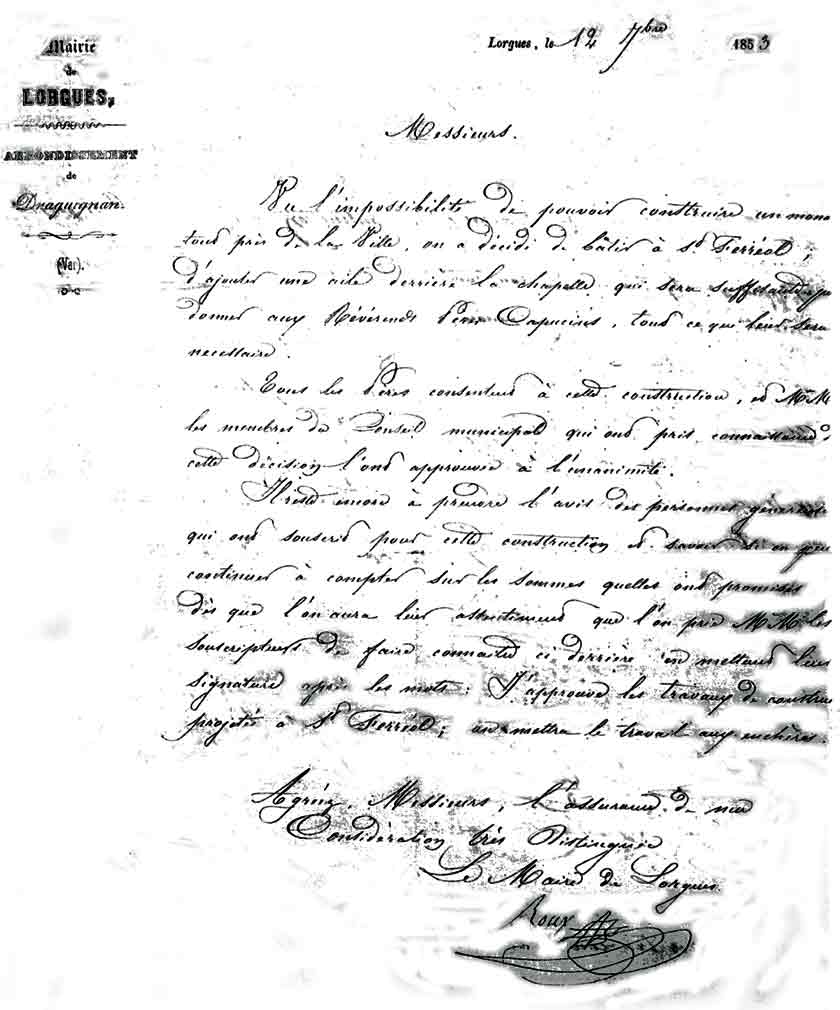 Mairie
de
LORGUES,
ARRONDISSEMENT
de
Draguignan.
(Var).
Lorgues, le 12 7bre 1853
Messieurs.
Vu l'impossibilité de pouvoir construire un mona
tout près de la Ville, on a décidé de bâtir à St Ferréol,
d'ajouter une aile derrière la chapelle qui sera suffisante po
donner aux Révérends Pères Capucins, tout ce qui leur sera
necessaire.
Tous les Pères consentent à cette construction, et M M
les membres du Conseil municipal qui ont pris connaissance
cette décision l'ont approuvée à l'unanimité.
Il reste encore à prendre l'avis des personnes
qui ont souscrit pour cette construction et savoir si on peu
continuer à compter sur les sommes quelles ont promises
dès que l'on aura leur assentiment que l'on prie M M les
souscripteurs de faire connaitre ci derrière en mettant leur
signature après les mots: J'approuve les travaux de construc
projetés à St Ferréol; on mettra le travail aux enchères.
Agréez, Messieurs, l'assurance de ma
Considération très Distinguée
Le Maire de Lorgues
Roux